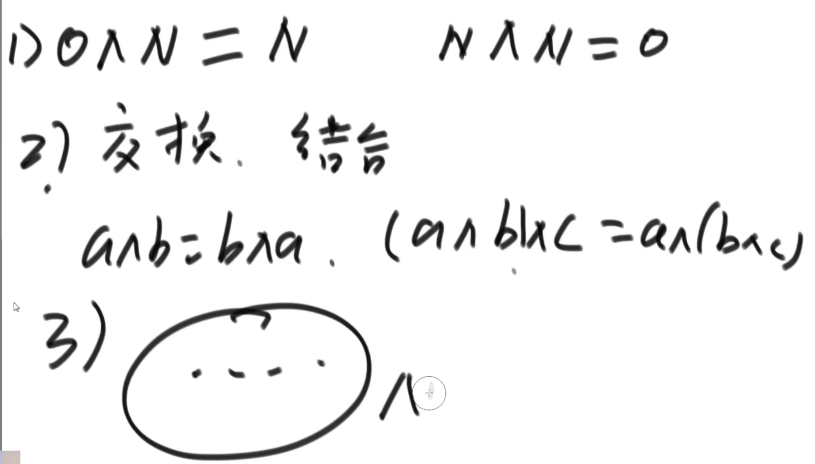 1) 0∧N=N N∧N=0
2) 交换、结合
a∧b=b∧a. (a∧b)∧c=a∧(b∧c)
3) ∧